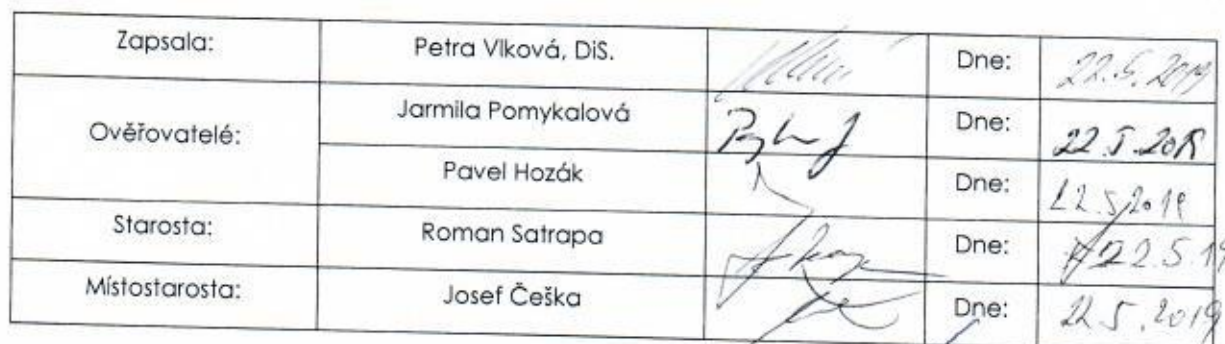 Zapsala: Petra Vlková, DiS. Dne: 22.5.2019
Ověřovatelé: Jarmila Pomykalová Dne: 22.5.2019
Pavel Hozák Dne: 22.5.2019
Starosta: Roman Satrapa Dne: 22.5.19
Místostarosta: Josef Češka Dne: 22.5.2019